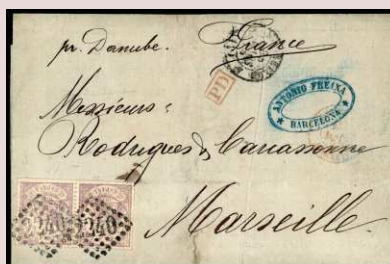 pr. Danube.
France
PD
ANTONIO FREIXA
BARCELONA
Messieurs
Rodrigues & Carcassonne
Marseille
2240 2240